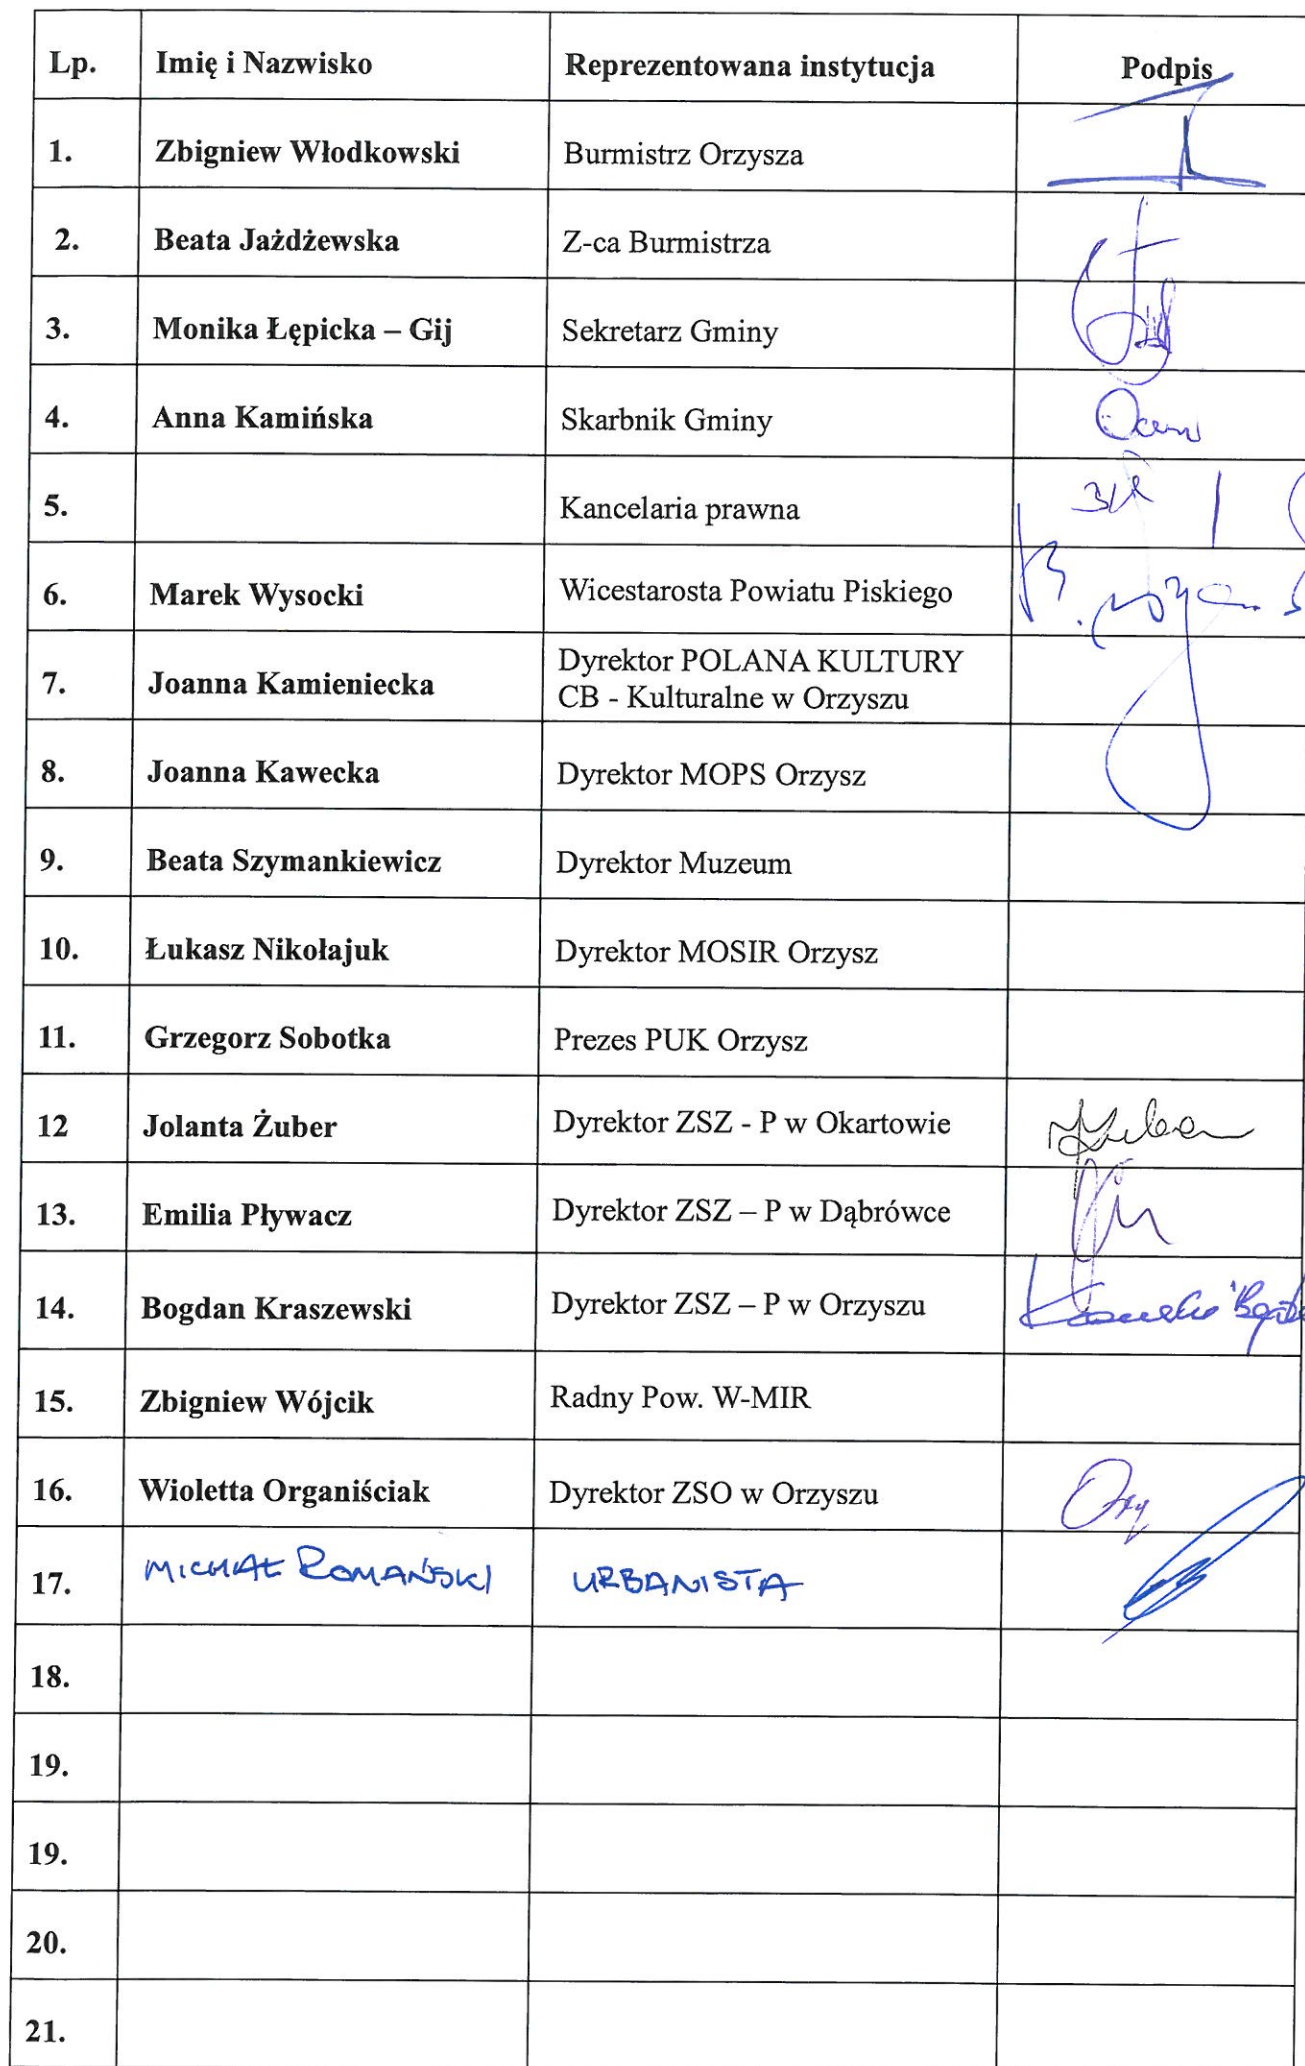 Lp. Imię i Nazwisko Reprezentowana instytucja Podpis
1. Zbigniew Włodkowski Burmistrz Orzysza
2. Beata Jażdżewska Z-ca Burmistrza
3. Monika Łępicka – Gij Sekretarz Gminy
4. Anna Kamińska Skarbnik Gminy
5. Kancelaria prawna
6. Marek Wysocki Wicestarosta Powiatu Piskiego
7. Joanna Kamieniecka Dyrektor POLANA KULTURY
CB - Kulturalne w Orzyszu
8. Joanna Kawecka Dyrektor MOPS Orzysz
9. Beata Szymankiewicz Dyrektor Muzeum
10. Łukasz Nikołajuk Dyrektor MOSIR Orzysz
11. Grzegorz Sobotka Prezes PUK Orzysz
12 Jolanta Żuber Dyrektor ZSZ - P w Okartowie
13. Emilia Pływacz Dyrektor ZSZ – P w Dąbrówce
14. Bogdan Kraszewski Dyrektor ZSZ – P w Orzyszu
15. Zbigniew Wójcik Radny Pow. W-MIR
16. Wioletta Organiściak Dyrektor ZSO w Orzyszu
17. MICHAŁ ROMAŃSKI URBANISTA
18.
19.
19.
20.
21.